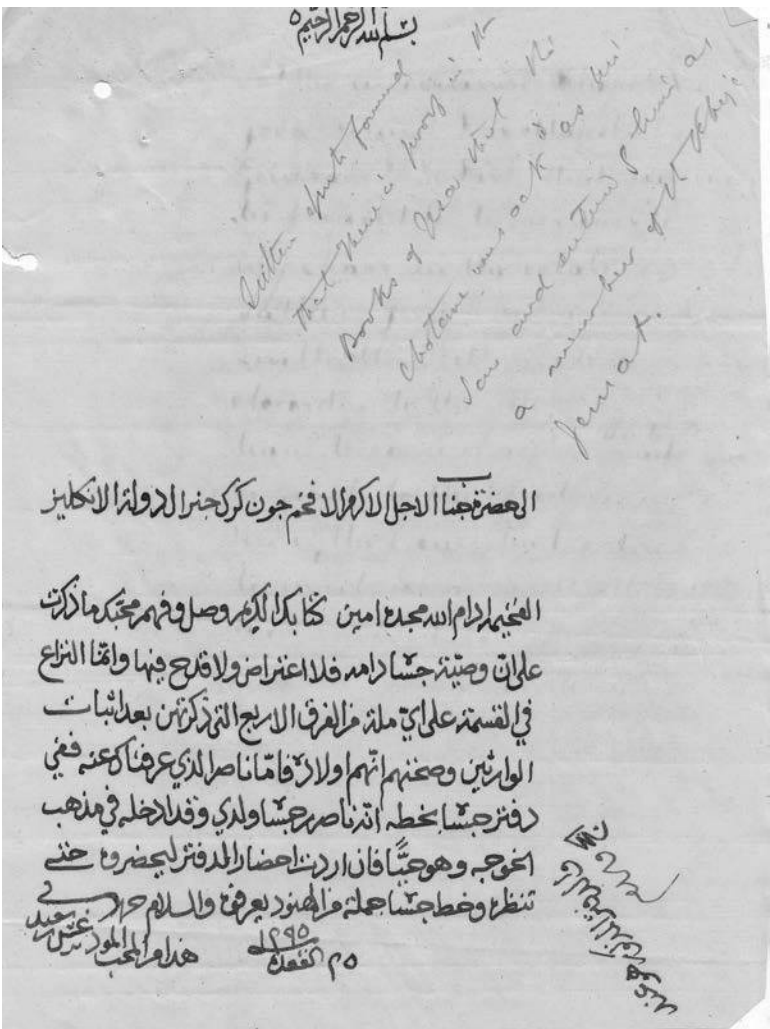 بسم الله الرحمن الرحيم
that there is proof in the
Books of Jesa that the
as his
Son and entered him as
a member of the Khoja
Jemat.
الى حضرة جناب الاجل الاكرم الافخم جون كرك جنرال دولة الانكليز
الفخيمه ادام الله مجده امين كتابك الكريم وصل وفهم محبك ما ذكرت
على ان وصيّة جسّا دامه فلا اعتراض ولا قدح فيها وانمّا النزاع
في القسمة على ايّ ملة من الفرق الاربع التي ذكرتهن بعد اثبات
الوارثين وصحتهم انّهم اولاده فامّا ناصر الذي عرفناك عنه ففي
دفتر جسّا بخطه انّه ناصر بن جسّا ولدي وقد ادخله في مذهب
الخوجه وهو حيًّا فان اردت احضار الدفتر ليحضروه حتى
تنظره وخط جسّا جملة من الهنود يعرفوه والسلام
هذا من المحب
٢٥ القعدة
١٢٩٥